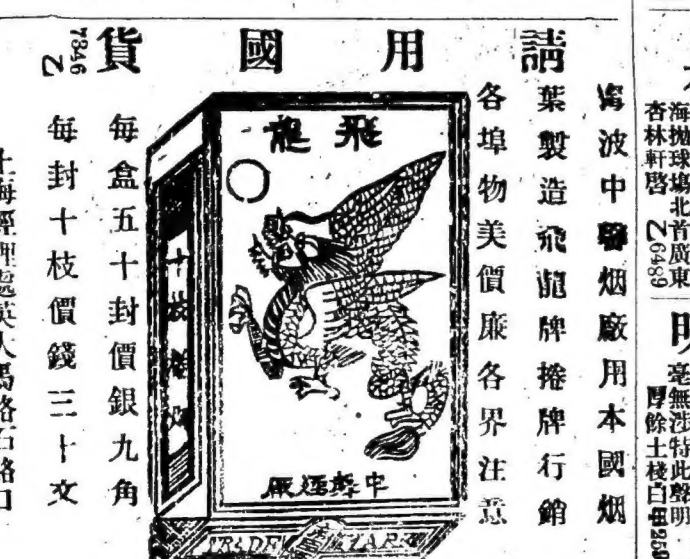 海拋球場北首廣東
杏林軒啓 乙6489
毫無涉特此聲明
厚餘土棧白
請用國貨
波中烟廠用本國烟
葉製造飛龍牌捲牌行銷
各埠物美價廉各界注意
飛龍
十枝捲烟
TRADE MARK
每盒五十封價銀九角
每封十枝價錢三十文
7346乙
上海經理處英大馬路石路口